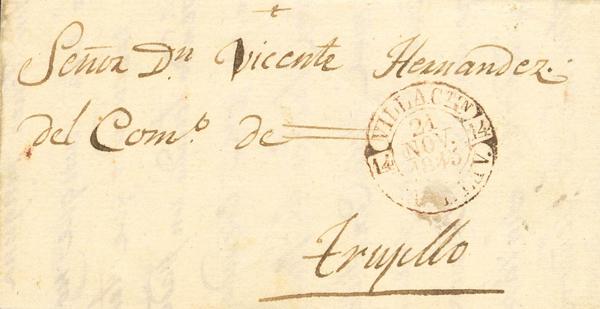 Señor Dn Vicente Hernandez.
del Como. de
VILLACTIN
21
NOV.
1845
Trujillo